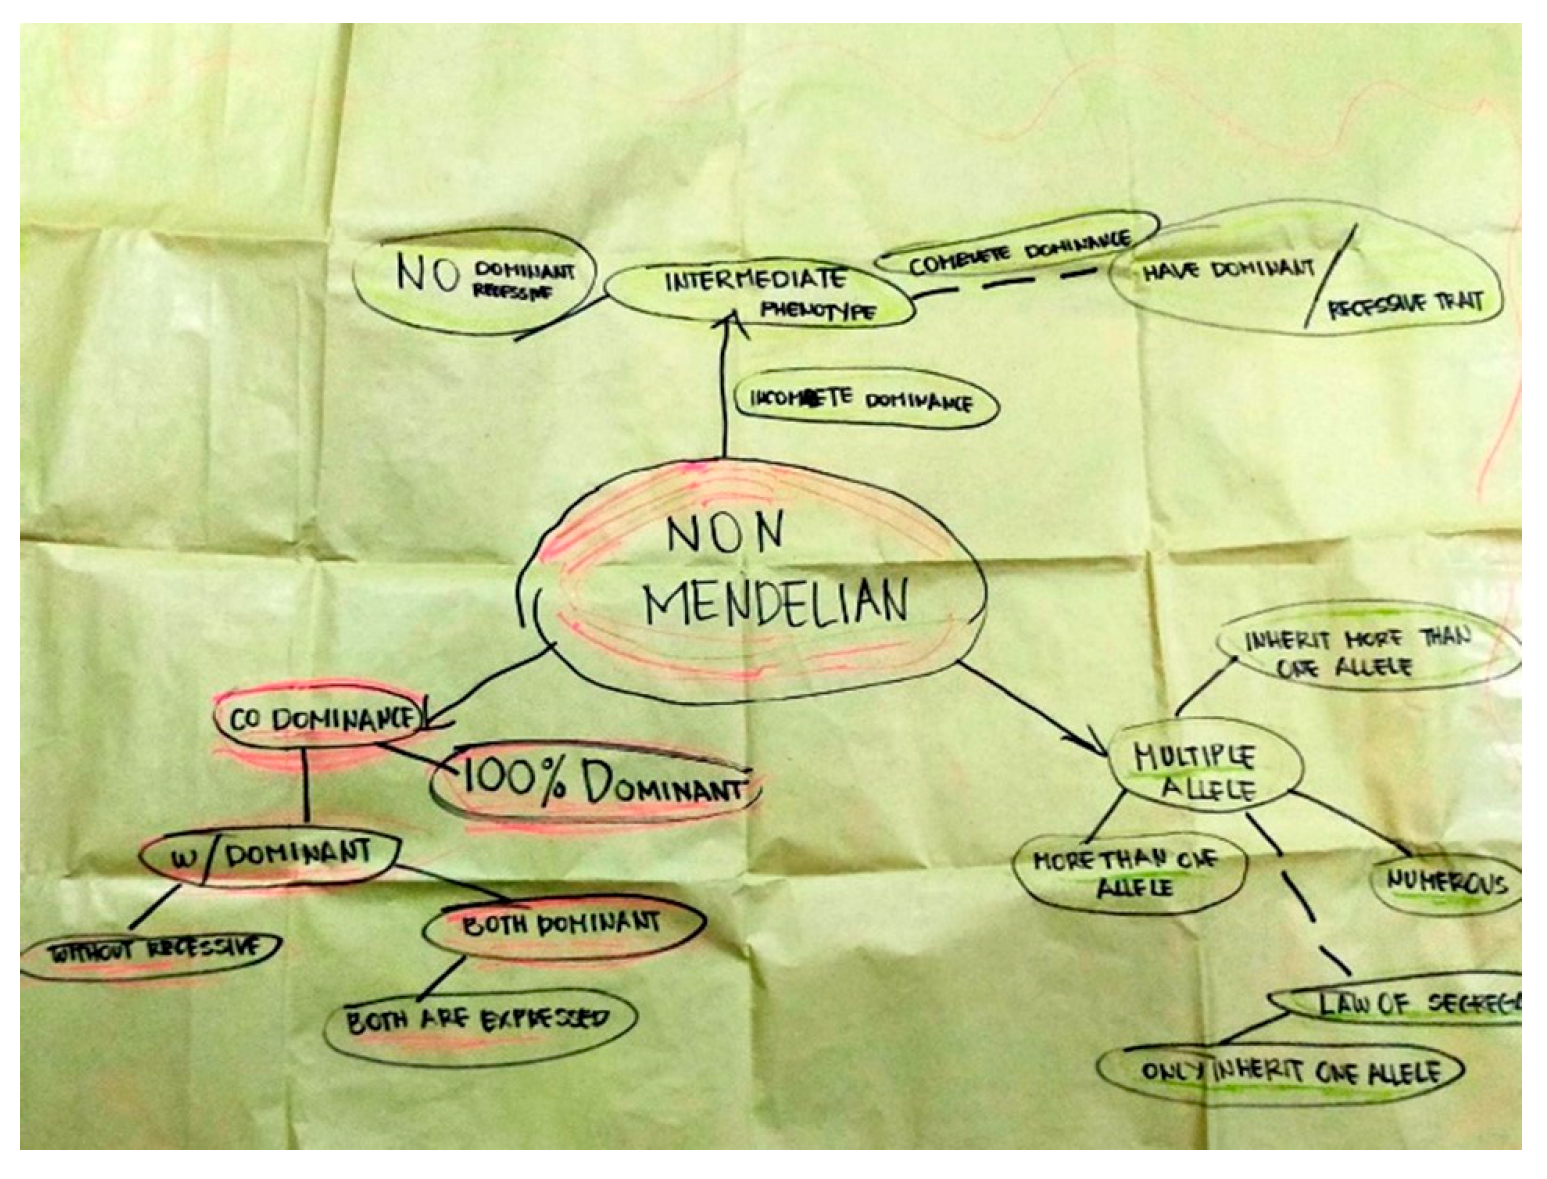 NO DOMINANT
RECESSIVE
INTERMEDIATE
PHENOTYPE
COMPLETE DOMINANCE
HAVE DOMINANT /
RECESSIVE TRAIT
INCOMPETE DOMINANCE
NON
MENDELIAN
CO DOMINANCE
100% DOMINANT
W/DOMINANT
WITHOUT RECESSIVE
BOTH DOMINANT
BOTH ARE EXPRESSED
INHERIT MORE THAN
ONE ALLELE
MULTIPLE
ALLELE
MORE THAN ONE
ALLELE
NUMEROUS
LAW OF SEGREGA
ONLY INHERIT ONE ALLELE